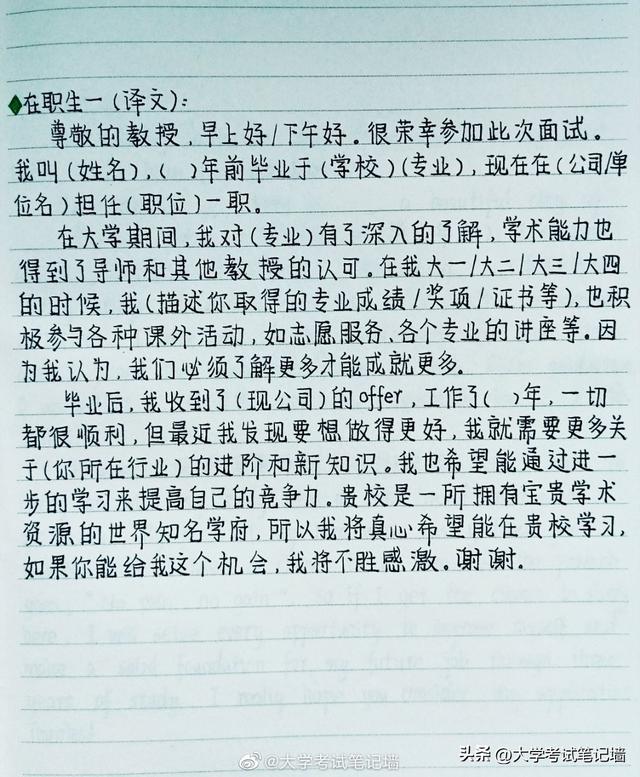 ◆在职生一(译文):
尊敬的教授,早上好/下午好。很荣幸参加此次面试。
我叫(姓名),( )年前毕业于(学校)(专业),现在在(公司/单
位名)担任(职位)一职。
在大学期间,我对(专业)有了深入的了解,学术能力也
得到了导师和其他教授的认可。在我大一/大二/大三/大四
的时候,我(描述你取得的专业成绩/奖项/证书等),也积
极参与各种课外活动,如志愿服务、各个专业的讲座等。因
为我认为,我们必须了解更多才能成就更多。
毕业后,我收到了(现公司)的offer,工作了( )年,一切
都很顺利,但最近我发现要想做得更好,我就需要更多关
于(你所在行业)的进阶和新知识。我也希望能通过进一
步的学习来提高自己的竞争力。贵校是一所拥有宝贵学术
资源的世界知名学府,所以我将真心希望能在贵校学习,
如果你能给我这个机会,我将不胜感激。谢谢。
@大学考试笔记墙
头条@大学考试笔记墙